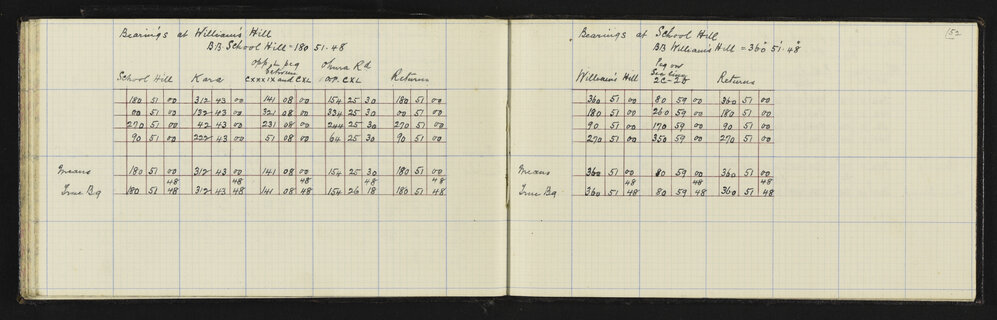 Bearings at Williams Hill
BB School Hill = 180 51 48
School Hill Kara opp. peg between CXXXIX and CXL Ohura Rd opp. CXL Returns
180 51 00 312 43 00 141 08 00 154 25 30 180 51 00
00 51 00 132 43 00 321 08 00 334 25 30 00 51 00
270 51 00 42 43 00 231 08 00 244 25 30 270 51 00
90 51 00 222 43 00 51 08 00 64 25 30 90 51 00
Means 180 51 00 312 43 00 141 08 00 154 25 30 180 51 00
48 48 48 48 48
True Bg 180 51 48 312 43 48 141 08 48 154 26 18 180 51 48
52
Bearings at School Hill
BB William's Hill = 360° 51' 48"
William's Hill Peg on Sec line 2C-2D Returns
360 51 00 80 59 00 360 51 00
180 51 00 260 59 00 180 51 00
90 51 00 170 59 00 90 51 00
270 51 00 350 59 00 270 51 00
Means 360 51 00 80 59 00 360 51 00
48 48 48
True Bg 360 51 48 80 59 48 360 51 48